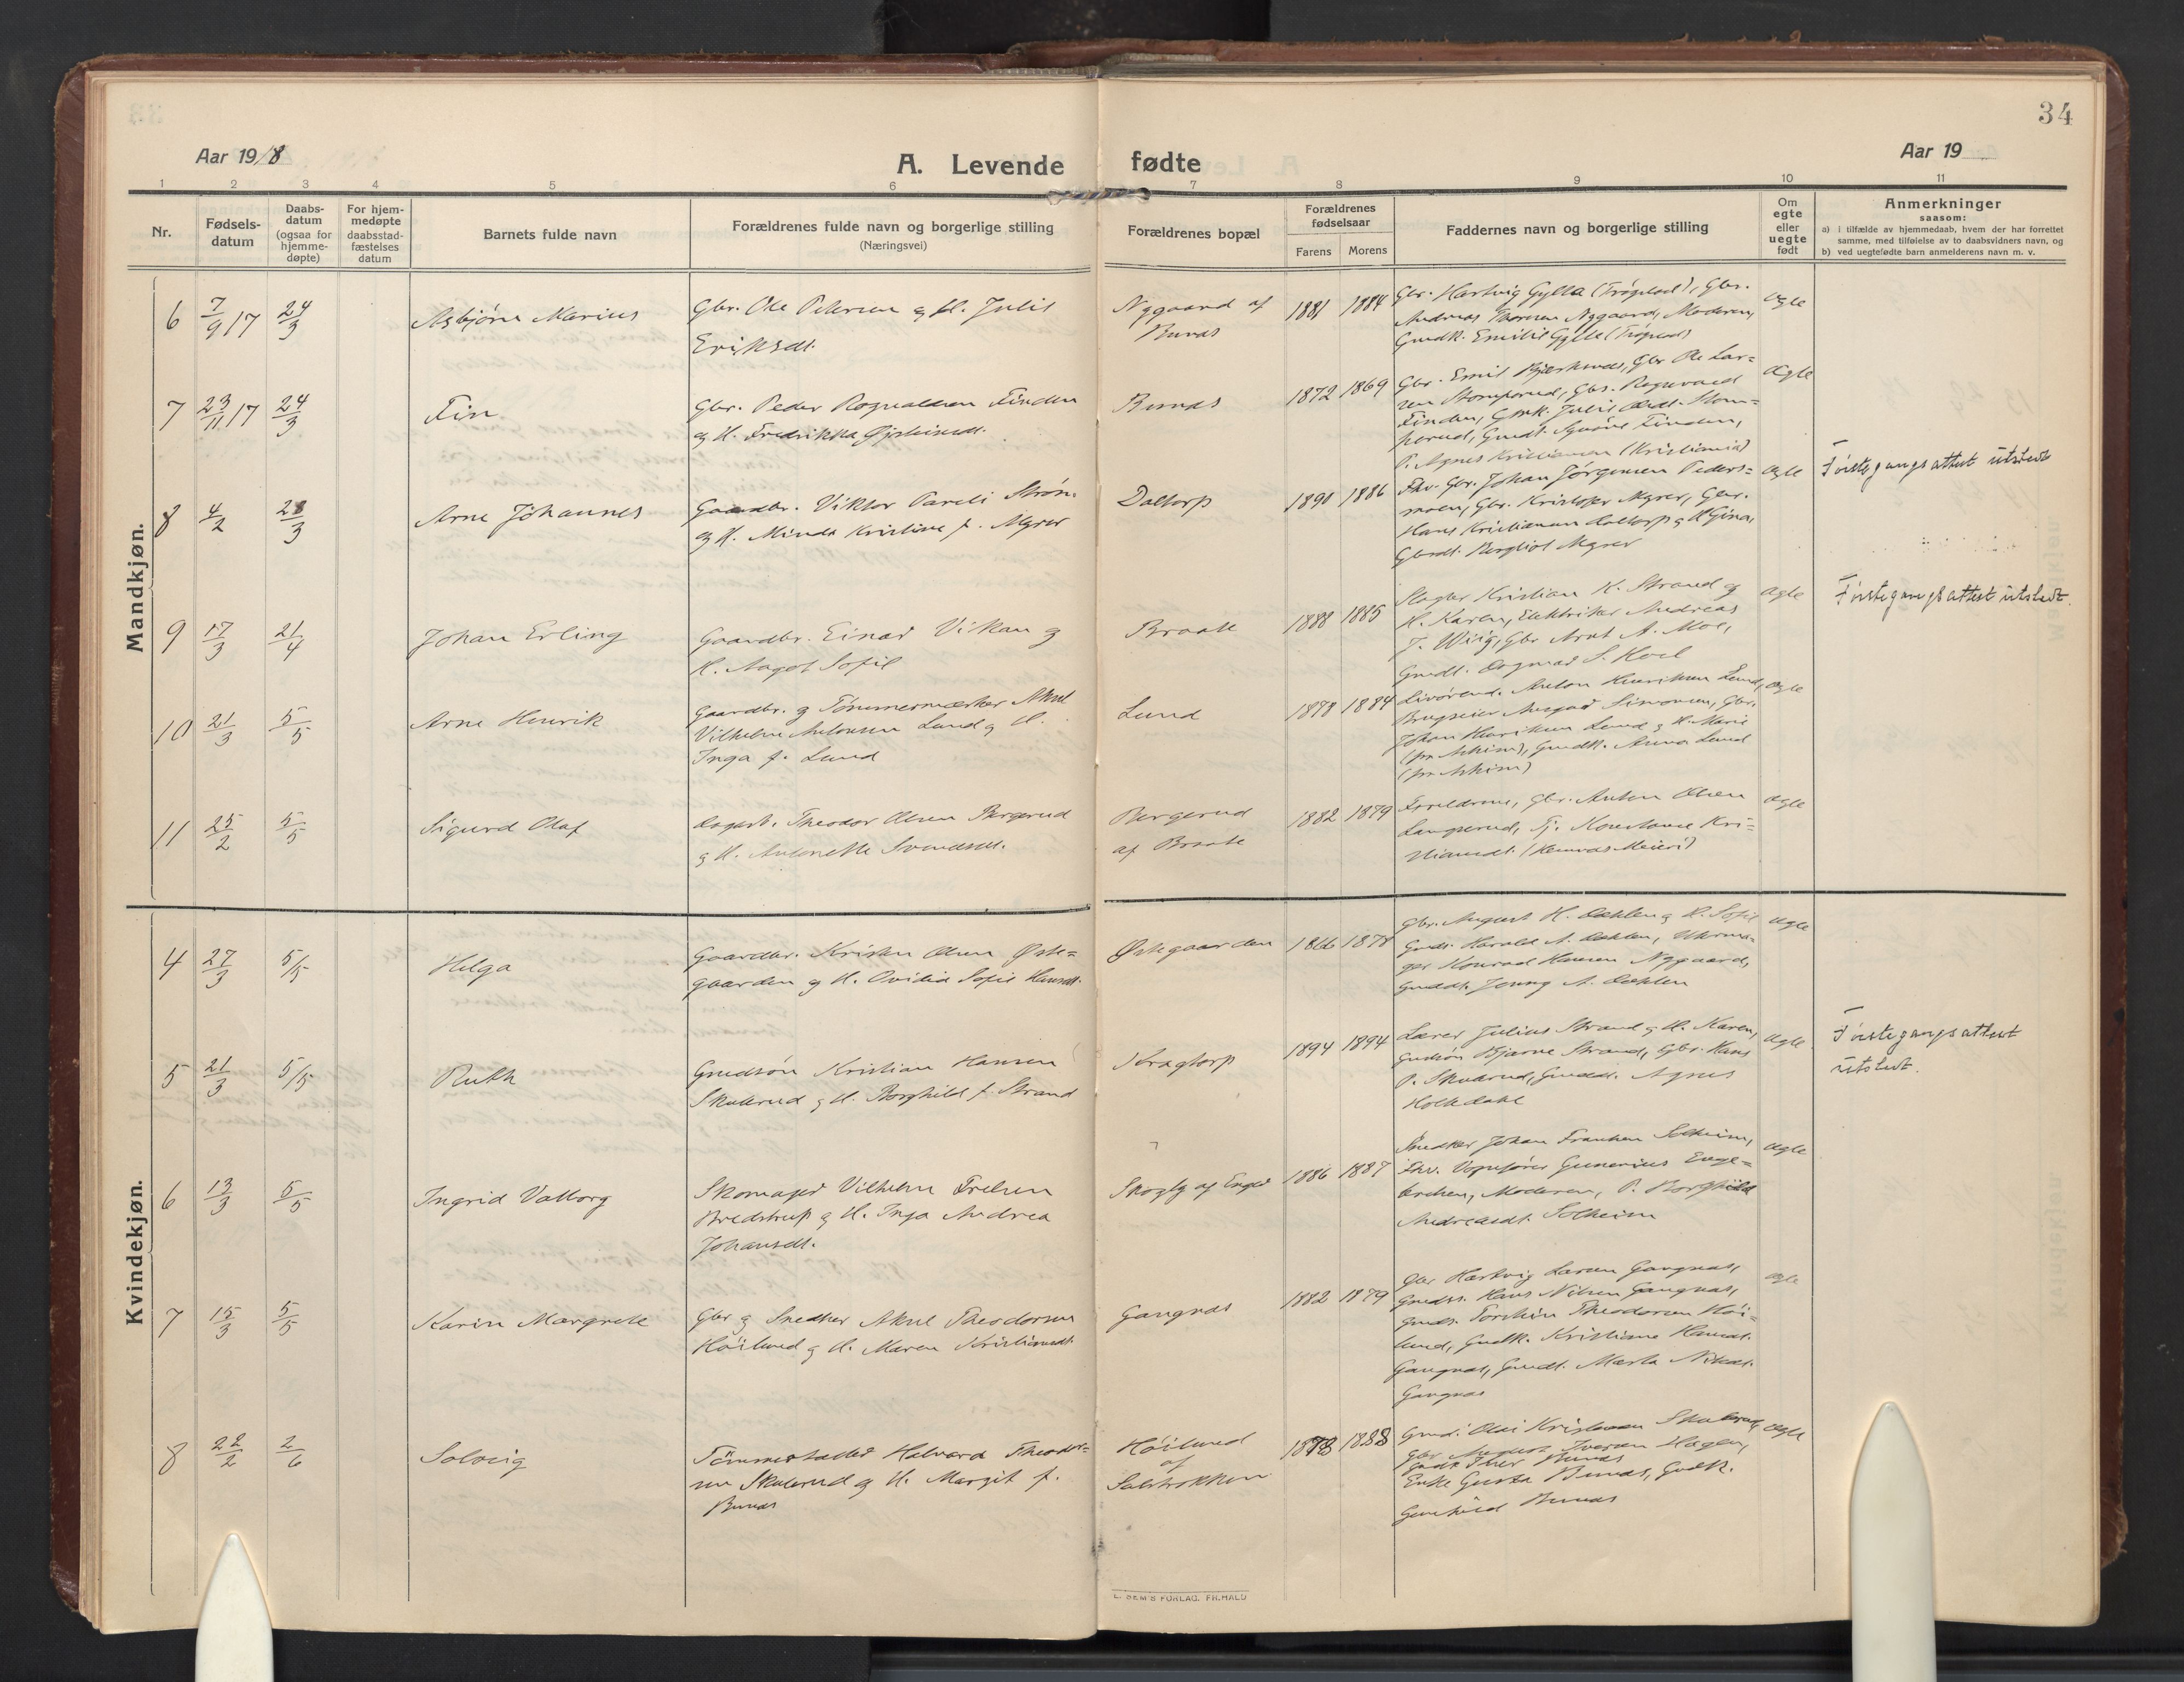 34
Aar 1918
A. Levende fødte
Aar 19
1 2 3 4 5 6 7 8 9 10 11
Nr.
Fødsels-
datum
Daabs-
datum
(ogsaa for
hjemme-
døpte)
For hjem-
medøpte
daabsstad-
fæstelses
datum
Barnets fulde navn
Forældrenes fulde navn og borgerlige stilling
(Næringsvei)
Forældrenes bopæl
Forældrenes
fødselsaar
Farens Morens
Faddernes navn og borgerlige stilling
Om
egte
eller
uegte
født
Anmerkninger
saasom:
a) i tilfælde av hjemmedaab, hvem der har forrettet
samme, med tilføielse av to daabsvidners navn, og
b) ved uegtefødte barn anmelderens navn m. v.
Mandkjøn.
6 7/9 17 24/3 Asbjørn Marius
Gbr. Ole Petersen og H. Julie
Eriksdt.
Nygaard af
Bunæs
1881 1884
Gbr. Hartvig Gylla (Trøgstad), Gbr.
Andreas Thoresen Nygaard, Moderen,
Gmdk. Emilie Gylla (Trøgstad)
ægte
7 23/11 17 24/3 Fin
Gbr. Peder Rognaldsen Finden
og H. Fredrikka Øjsteinsdt.
Bunæs
1872 1869
Gbr. Emil Bjerknæs, Gbr Ole Lar=
sen Stomperud, Gbs. Rognvald
Finden, Gmk. Julie Olsdt. Stom=
perud, Gmdt. Synøve Finden,
P. Agnes Kristiansen (Kristiania)
ægte
8 4/2 28/3 Arne Johannes
Gaardbr. Viktor Pareli Strøm
og H. Minda Kristine f. Myrer
Daltorp
1890 1886
Fhv. Gbr. Johan Jørgensen Peders=
moen, Gbr. Kristofer Myrer, Gbr.
Hans Kristiansen Daltorp og H. Gina,
Gbrdt. Bergliot Myrer
ægte
Førstegangsattest utstedt
9 17/3 21/4 Johan Erling
Gaardbr. Einar Vikan og
H. Aagot Sofie
Braate
1888 1885
Slagter Kristian K. Strand og
H. Karen, Elektriker Andreas
J. Wiig, Gbr Arnt A. Moe,
Gmdt. Dagmar S. Hoel
ægte
Førstegangsattest utstedt.
10 21/3 5/5 Arne Henrik
Gaardbr. og Tømmermærker Aksel
Vilhelm Antonsen Lund og H.
Inga f. Lund
Lund
1878 1884
Livørend. Anton Henriksen Lund,
Brugseier Ansgar Simonsen, Gbr.
Johan Henriksen Lund og H. Marie
(pr Askim), Gmdk. Anna Lund
(pr. Askim)
ægte
11 25/2 5/5 Sigurd Olaf
Dagarb. Theodor Olsen Bergerud
og H. Antonette Svendsdt.
Bergerud
af Braate
1882 1879
Forældrene, Gbr. Anton Olsen
Langserud, Tj. Konstanse Kri=
stiansdt. (Hemnæs Meieri)
ægte
Kvindekjøn.
4 27/3 5/5 Helga
Gaardbr. Kristen Olsen Øste=
gaarden og H. Ovidia Sofie Hansdt.
Østegaarden
1866 1878
Gbr. August H. Dahlen og H. Sofie
Gmds. Harald A. Dahlen, Uhrma=
ger Konrad Hansen Nygaard,
Gmddt. Jenny A. Dahlen
ægte
5 21/3 5/5 Ruth
Gmdsøn Kristian Hansen
Skulerud og H. Borghild f. Strand
Kragtorp
1894 1894
Lærer Julius Strand og H. Karen,
Gmdsøn Bjarne Strand, Gbr. Hans
P. Skulerud, Gmddt. Agnes
Holtedahl
ægte
Førstegangsattest
utstedt.
6 13/3 5/5 Ingrid Valborg
Skomager Vilhelm Frelsen
Bredstrup og H. Inga Andrea
Johansdt.
Skogly af Enger
1886 1887
Snedker Johan Fransen Solheim,
Fhv. Vognfører Gunerius Enge=
bretsen, Moderen, P. Borghild
Andreasdt. Solheim
ægte
7 15/3 5/5 Karin Margrete
Gbr og Snedker Aksel Theodorsen
Høilund og H. Maren Kristiansdt.
Gangnæs
1882 1879
Gbr Hartvig Larsen Gangnæs,
Gmds. Hans Nilsen Gangnæs,
Gmds. Torstein Theodorsen Høi=
lund, Gmdk. Kristiane Hansdt.
Gangnæs, Gmdt. Marta Nilsdt.
Gangnæs
ægte
8 22/2 2/6 Solveig
Tømmerstader Halvard Theodor=
sen Skulerud og H. Margit f.
Bunæs
Høilund
af
Salstrokken
1878 1888
Gmd. Olai Kristiansen Skulerud,
Gbr Iversen Hagen,
Bunæs
Enke Gusta Bunæs, Gmdk.
Gunhild Bunæs
ægte
E. SEM'S FORLAG, FR.HALD